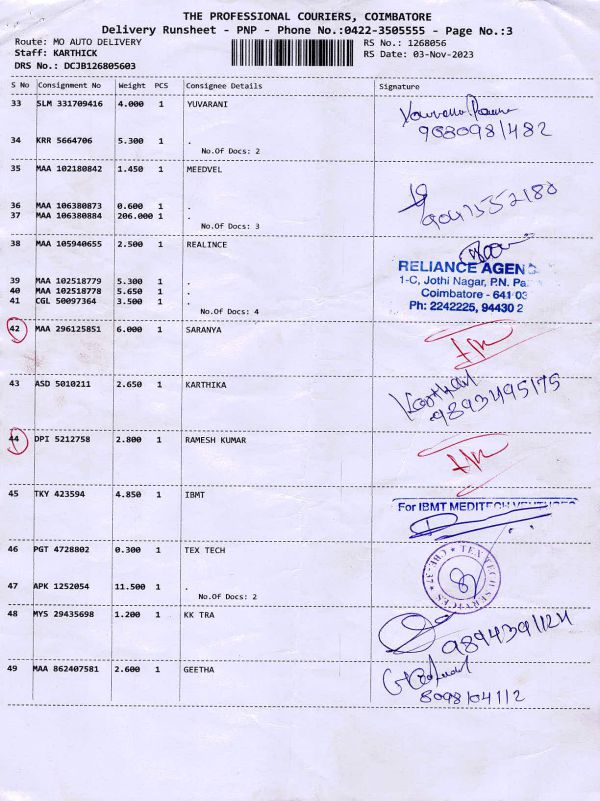 THE PROFESSIONAL COURIERS, COIMBATORE
Delivery Runsheet - PNP - Phone No.:0422-3505555 - Page No.:3
Route: MO AUTO DELIVERY RS No.: 1268056
Staff: KARTHICK RS Date: 03-Nov-2023
DRS No.: DCJB126805603
S No Consignment No Weight PCS Consignee Details Signature
33 SLM 331709416 4.000 1 YUVARANI
34 KRR 5664706 5.300 1 .
No.Of Docs: 2
9080981482
35 MAA 102180842 1.450 1 MEEDVEL
36 MAA 106380873 0.600 1 .
37 MAA 106380884 206.000 1 .
No.Of Docs: 3
9047552180
38 MAA 105940655 2.500 1 REALINCE
39 MAA 102518779 5.300 1 .
40 MAA 102518778 5.650 1 .
41 CGL 50097364 3.500 1 .
No.Of Docs: 4
RELIANCE AGEN
1-C, Jothi Nagar, P.N. Pa
Coimbatore - 641 03
Ph: 2242225, 94430 2
42 MAA 296125851 6.000 1 SARANYA
43 ASD 5010211 2.650 1 KARTHIKA
9893495175
44 DPI 5212758 2.800 1 RAMESH KUMAR
45 TKY 423594 4.850 1 IBMT
For IBMT MEDITECH VENTURES
46 PGT 4728802 0.300 1 TEX TECH
47 APK 1252054 11.500 1 .
No.Of Docs: 2
TEX TECH SERVICES CBE-37
48 MYS 29435698 1.200 1 KK TRA
9894391124
49 MAA 862407581 2.600 1 GEETHA
8098104112